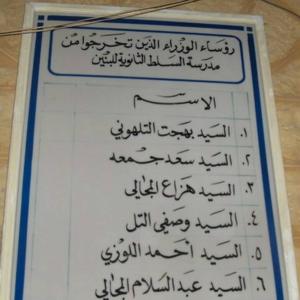 رؤساء الوزراء الذين تخرجوا من
مدرسة السلط الثانوية للبنين
الاسم
١. السيد بهجت التلهوني
٢. السيد سعد جمعه
٣. السيد هزاع المجالي
٤. السيد وصفي التل
٥. السيد احمد اللوزي
٦. السيد عبد السلام المجالي